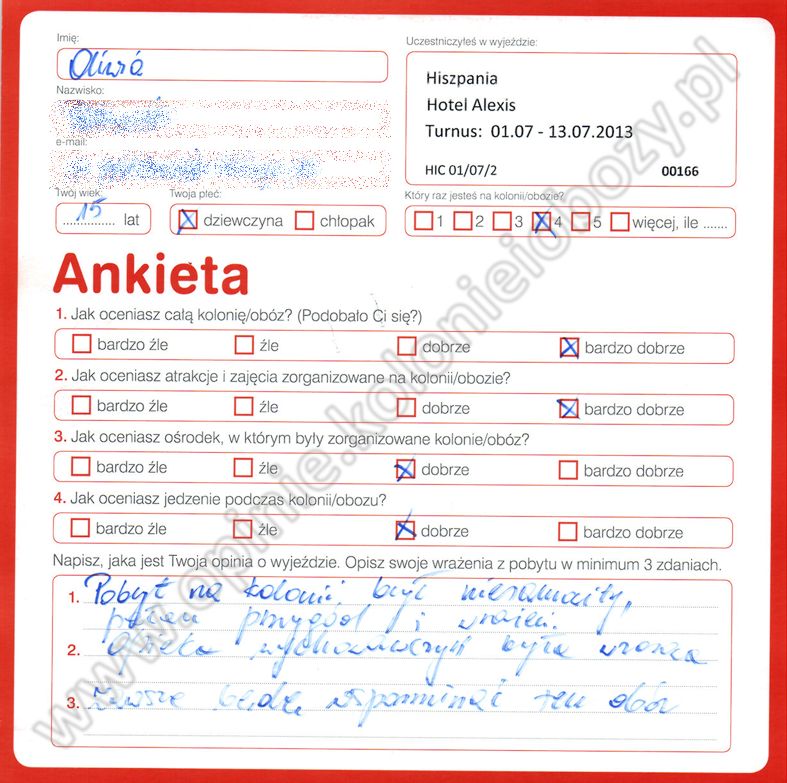 Imię:
Oliwia
Nazwisko:
e-mail:
Twój wiek:
15 lat
Twoja płeć:
dziewczyna chłopak
Uczestniczyłeś w wyjeździe:
Hiszpania
Hotel Alexis
Turnus: 01.07 - 13.07.2013
HIC 01/07/2 00166
Który raz jesteś na kolonii/obozie?
1 2 3 4 5 więcej, ile .......
Ankieta
1. Jak oceniasz całą kolonię/obóz? (Podobało Ci się?)
bardzo źle źle dobrze bardzo dobrze
2. Jak oceniasz atrakcje i zajęcia zorganizowane na kolonii/obozie?
bardzo źle źle dobrze bardzo dobrze
3. Jak oceniasz ośrodek, w którym były zorganizowane kolonie/obóz?
bardzo źle źle dobrze bardzo dobrze
4. Jak oceniasz jedzenie podczas kolonii/obozu?
bardzo źle źle dobrze bardzo dobrze
Napisz, jaka jest Twoja opinia o wyjeździe. Opisz swoje wrażenia z pobytu w minimum 3 zdaniach.
1. Pobyt na kolonii był niesamowity,
pełen przygód i wrażeń.
2. Opieka wychowawczyń była
3. Zawsze będę wspominać ten obóz
www.opinie.kolonieiobozy.pl